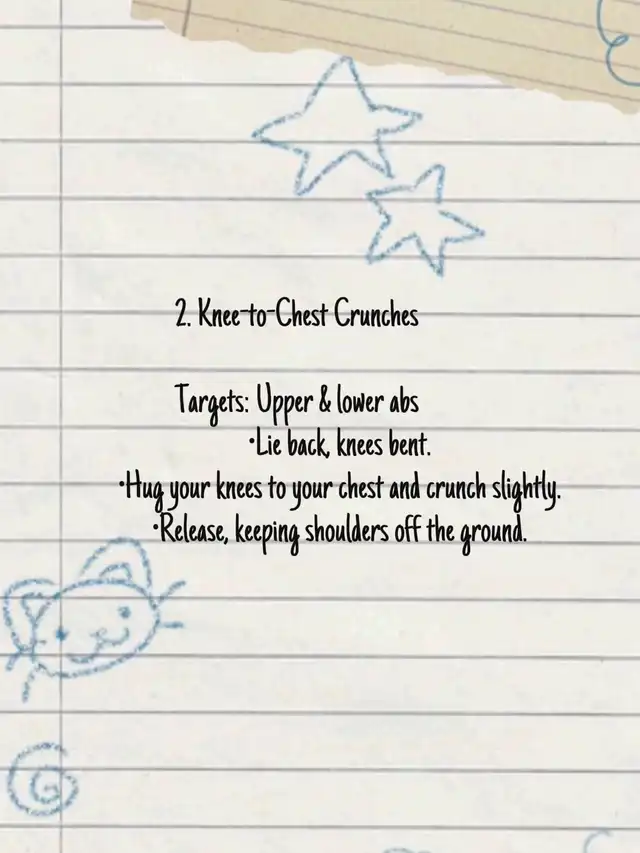 2. Knee-to-Chest Crunches
Targets: Upper & lower abs
•Lie back, knees bent.
•Hug your knees to your chest and crunch slightly.
•Release, keeping shoulders off the ground.